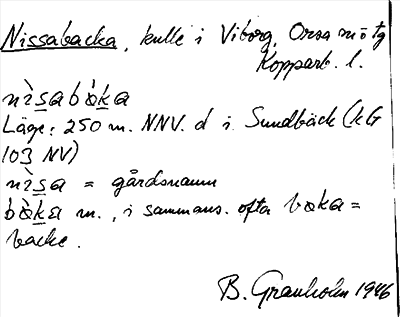 Nissabacka, kulle i Viborg, Orsa sn ö tg
Kopparb. l.
nìsabàka
Läge: 250 m. NNV. d i Sundbäck (kG
103 NV)
nìsa = gårdsnamn
bàka m., i sammans. ofta baka =
backe.
B. Granholm 1946